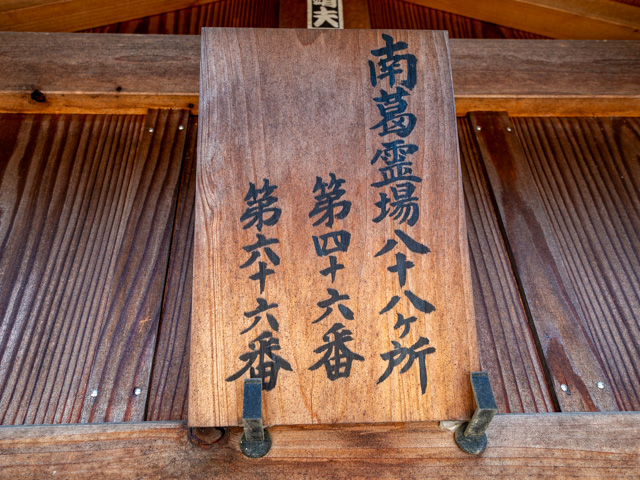 南葛霊場八十八ヶ所
第四十六番
第六十六番